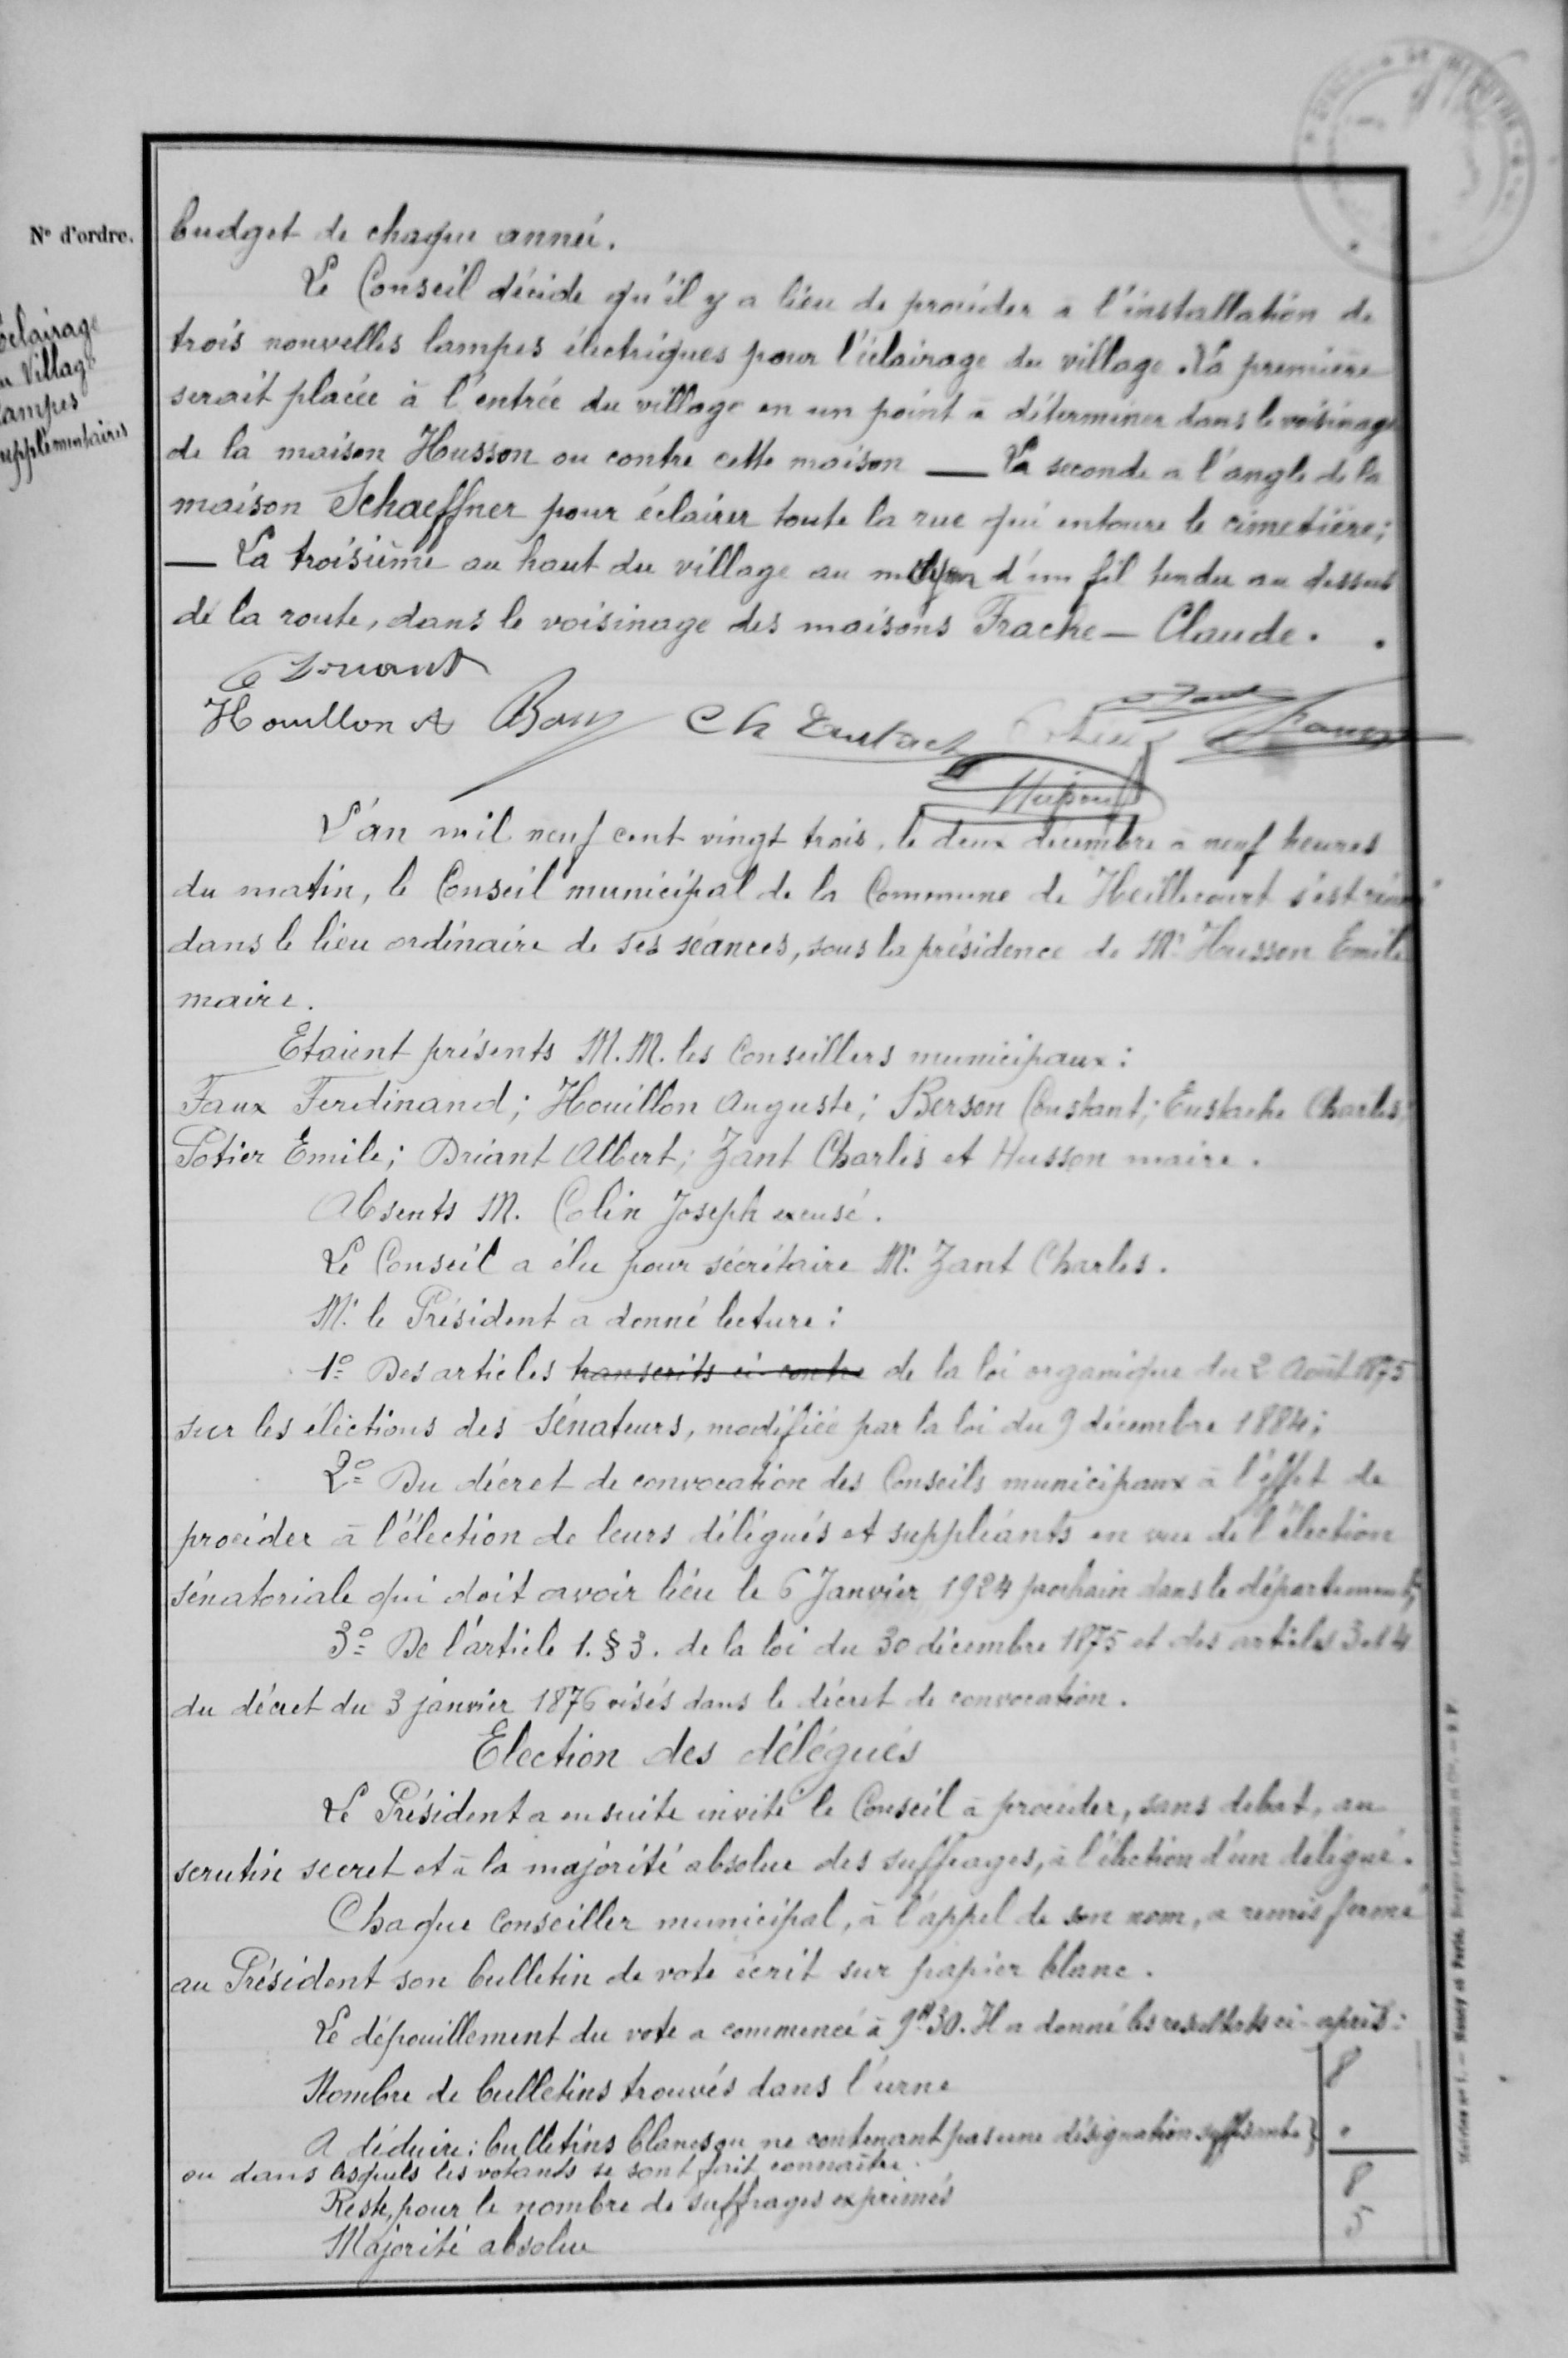 N° d'ordre.
Eclairage
du Village
Lampes
supplémentaires
budget de chaque année.
Le Conseil décide qu'il y a lieu de procéder à l'installation de
trois nouvelles lampes électriques pour l'éclairage du village. La première
serait placée à l'entrée du village en un point à déterminer dans le voisinage
de la maison Husson ou contre cette maison — La seconde a l'angle de la
maison Schaeffner pour éclairer toute la rue qui entoure le cimetière;
— La troisième au haut du village au moyen d'un fil tendu au dessus
de la route, dans le voisinage des maisons Frache — Claude.
Briant
Houillon A Ch Eustach
L'an mil neuf cent vingt trois, le deux décembre à neuf heures
du matin, le Conseil municipal de la Commune de Heillecourt s'est réuni
dans le lieu ordinaire de ses séances, sous la présidence de Mr Husson Emile
maire.
Etaient présents M.M. les Conseillers municipaux:
Faux Ferdinand; Houillon Auguste; Berson Constant; Eustache Charles;
Potier Emile; Briant Albert; Zant Charles et Husson maire.
Absents M. Colin Joseph excusé.
Le Conseil a élu pour sécrétaire Mr Zant Charles.
Mr le Président a donné lecture:
1° Des articles transcrits ci-contre de la loi organique du 2 Août 1875
sur les élections des Sénateurs, modifiée par la loi du 9 décembre 1884;
2° Du décret de convocation des Conseils municipaux à l'effet de
procéder à l'élection de leurs délégués et suppléants en vue de l'élection
sénatoriale qui doit avoir lieu le 6 Janvier 1924 prochain dans le département;
3° De l'article 1. § 3. de la loi du 30 décembre 1875 et des articles 3 et 4
du décret du 3 janvier 1876 visés dans le décret de convocation.
Election des délégués
Le Président a ensuite invité le Conseil à procéder, sans debat, au
scrutin secret et à la majorité absolue des suffrages, à l'élection d'un délégué.
Chaque Conseiller municipal, à l'appel de son nom, a remis fermé
au Président son bulletin de vote écrit sur papier blanc.
Le dépouillement du vote a commencé à 9H30. Il a donné les resultats ci-après:
Nombre de bulletins trouvés dans l'urne 8
A déduire: bulletins blancs ou ne contenant pas une désignation suffisante } "
ou dans lesquels les votants se sont fait connaître.
Reste, pour le nombre de suffrages exprimés 8
Majorité absolue 5